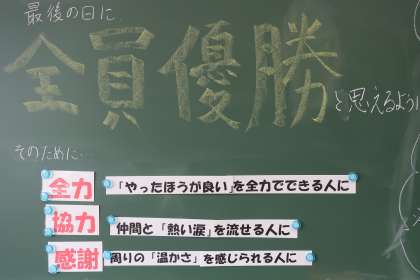 最後の日に
全員優勝
と思えるように
そのために…
全力 「やったほうが良い」を全力でできる人に
協力 仲間と「熱い涙」を流せる人に
感謝 周りの「温かさ」を感じられる人に